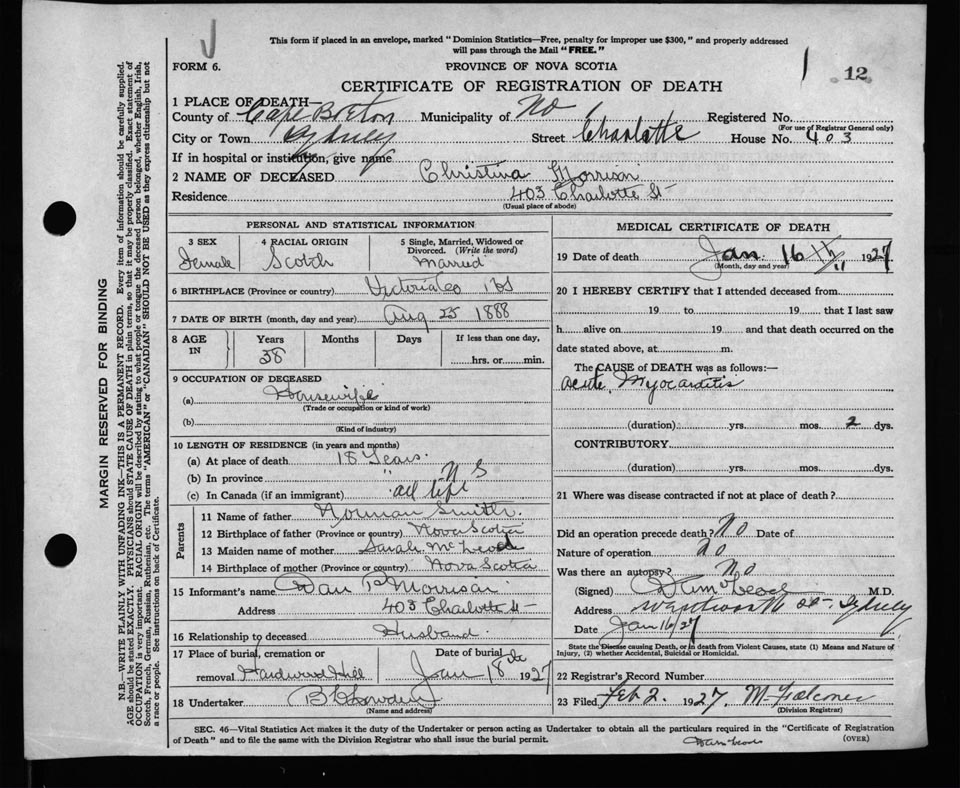 This form if placed in an envelope, marked "Dominion Statistics—Free, penalty for improper use $300," and properly addressed
will pass through the Mail "FREE."
FORM 6.
PROVINCE OF NOVA SCOTIA
12
CERTIFICATE OF REGISTRATION OF DEATH
1 PLACE OF DEATH—
County of Cape Breton Municipality of No Registered No.
(For use of Registrar General only)
City or Town Sydney Street Charlotte House No. 403
If in hospital or institution, give name
2 NAME OF DECEASED Christina Morrison
Residence 403 Charlotte St
(Usual place of abode)
PERSONAL AND STATISTICAL INFORMATION
3 SEX 4 RACIAL ORIGIN 5 Single, Married, Widowed or Divorced. (Write the word)
Female Scotch Married
6 BIRTHPLACE (Province or country) Victoria Co NS
7 DATE OF BIRTH (month, day and year) Aug 25 1888
8 AGE IN Years Months Days If less than one day,
38 hrs. or min.
9 OCCUPATION OF DECEASED
(a) Housewife
(Trade or occupation or kind of work)
(b)
(Kind of industry)
10 LENGTH OF RESIDENCE (in years and months)
(a) At place of death 18 Years.
(b) In province " N S
(c) In Canada (if an immigrant) all life
Parents
11 Name of father Norman Smith.
12 Birthplace of father (Province or country) Nova Scotia
13 Maiden name of mother Sarah McLeod
14 Birthplace of mother (Province or country) Nova Scotia
15 Informant's name Dan P Morrison
Address 403 Charlotte St
16 Relationship to deceased Husband.
17 Place of burial, cremation or removal Hardwood Hill
Date of burial Jan 18th 1927
18 Undertaker
(Name and address)
MEDICAL CERTIFICATE OF DEATH
19 Date of death Jan. 16th 1927
(Month, day and year)
20 I HEREBY CERTIFY that I attended deceased from
19 to 19 that I last saw
h alive on 19 and that death occurred on the
date stated above, at m.
The CAUSE of DEATH was as follows:—
Acute Myocarditis
(duration) yrs. mos. 2 dys.
CONTRIBUTORY
(duration) yrs. mos. dys.
21 Where was disease contracted if not at place of death?
Did an operation precede death? No Date of
Nature of operation no
Was there an autopsy? No
(Signed) M.D.
Address Sydney
Date Jan 16/27
State the Disease causing Death, or in death from Violent Causes, state (1) Means and Nature of
Injury, (2) whether Accidental, Suicidal or Homicidal.
22 Registrar's Record Number
23 Filed Feb 2. 1927. M. Falconer
(Division Registrar)
SEC. 46—Vital Statistics Act makes it the duty of the Undertaker or person acting as Undertaker to obtain all the particulars required in the "Certificate of Registration
of Death" and to file the same with the Division Registrar who shall issue the burial permit.
(OVER)
MARGIN RESERVED FOR BINDING
N.B.—WRITE PLAINLY WITH UNFADING INK—THIS IS A PERMANENT RECORD. Every item of information should be carefully supplied.
AGE should be stated EXACTLY. PHYSICIANS should STATE CAUSE OF DEATH in plain terms, so that it may be properly classified. Exact statement of
OCCUPATION is very important. RACIAL ORIGIN will be described by stating to what people or tongue the deceased person belonged, whether English, Irish,
Scotch, French, German, Russian, Ruthenian, etc. The terms "AMERICAN" or "CANADIAN" SHOULD NOT BE USED as they express citizenship but not
a race or people. See instructions on back of Certificate.